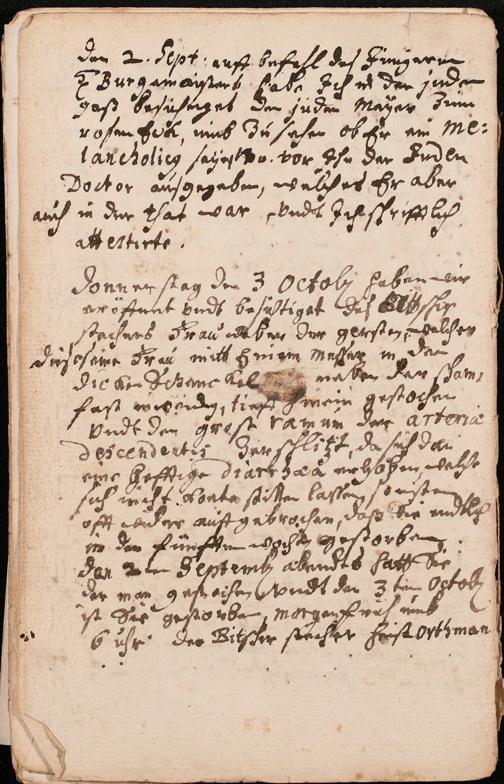 den 2. Sept: auff befehl des Jüngeren
H Burgemeisters habe Ich in der juden
gaß besichtiget den juden Meyer zum
rosen, umb zu sehen ob Er ein me=
lancholicg seye, vor Ihn der Juden
Doctor ausgegeben, welches Er aber
auch in der that war, undt Ich schrifftlich
attestirte.
Donnerstag den 3 Octobr haben wir
eröffnet undt besichtiget des
stechers Frau neben der gersten, welcher
dieser seine Frau mitt einem messer in den
dicken Schenckel neben der scham
fast inwendig, tieff hinein gestochen
undt den grosse ramum der arteriæ
descendentis zerschlitzt, da sich dan
eine hefftige diarrhæa erhoben, welche
sich nicht konte stillen lassen, sonsten
offt wider auffgebrochen, daß Sie endtlich
in der fünfften woche gestorben.
den 2ten Septemb abendts hatt Sie
der man gestochen, undt den 3ten Octobr
ist Sie gestorben, morgen früh umb
6 uhr. der Bitschir stecher heist Orthman